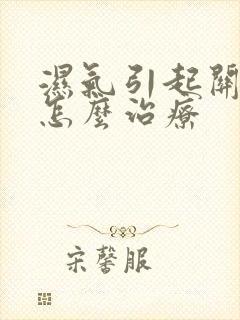 濕氣引起關
怎麼治療
宋馨服